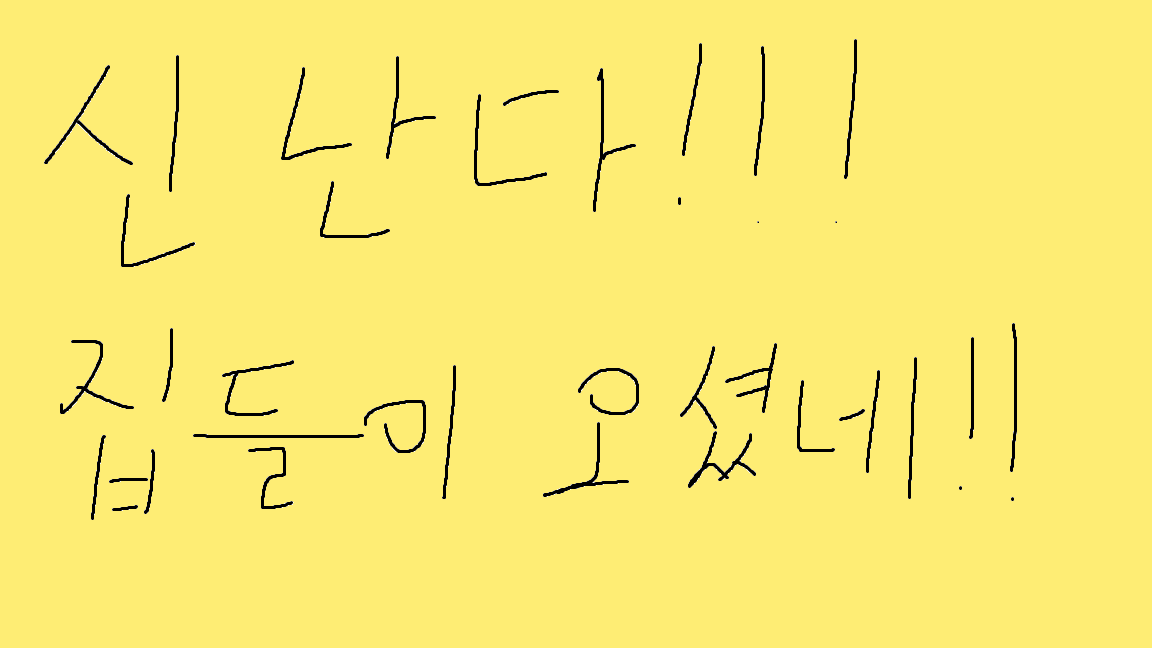 신난다!!!
집들이 오셨네!!